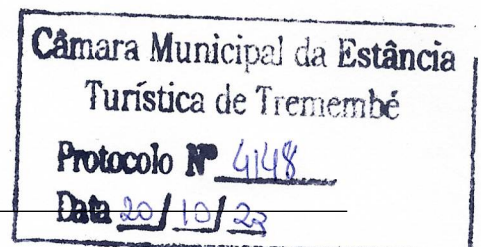 Câmara Municipal da Estância
Turística de Tremembé
Protocolo Nº 4148
Data 20/10/23